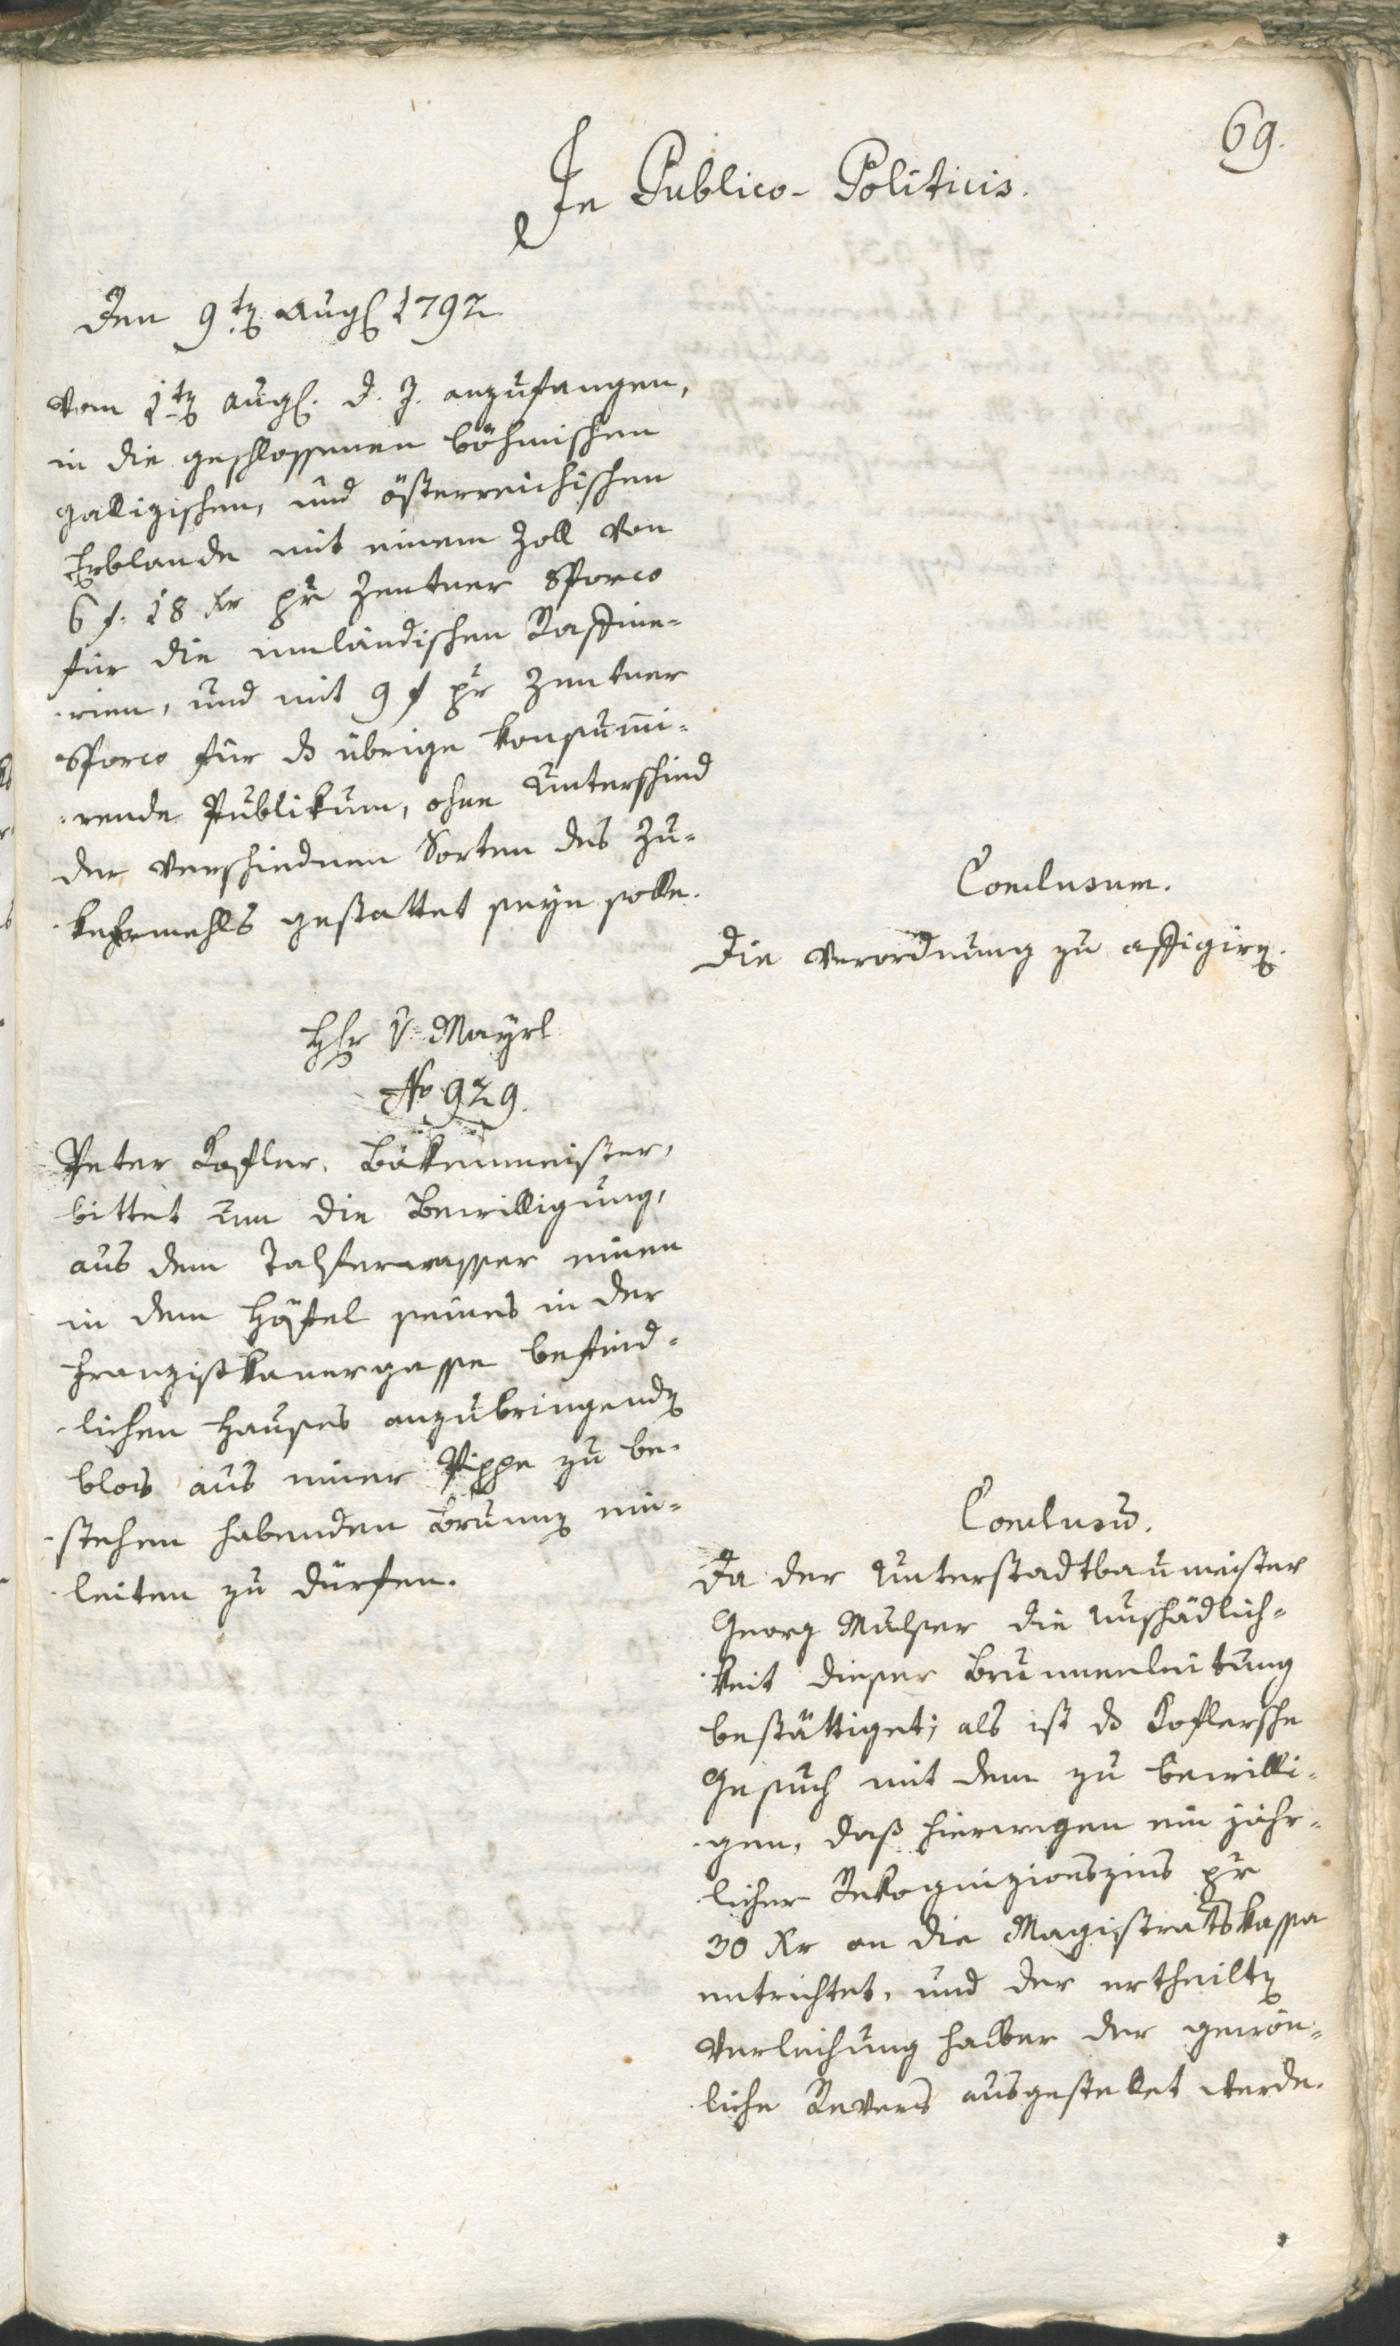 69.
In Publico-Politicis.
Den 9tn Augs 1792
vom 1tn Augs. d. J. anzufangen,
in die geschlossenen böhmischen
gallizischen, und österreichischen
Erblande mit einem Zoll von
6 f. 18 Kr pr Zentner Sporco
für die innländischen Raffine-
-rien, und mit 9 f pr Zentner
Sporco für ds übrige konsumi-
-rende Publikum, ohne Unterschied
der verschiednen Sorten des Zu-
-kermehls gestattet seyn solle.
Conclusum.
Die Verordnung zu affigirn.
Hhr v. Mayrl
No 929.
Peter Kofler, Bäkenmeister,
bittet um die Bewilligung,
aus dem Talferwasser einen
in dem Höfel seines in der
Franziskanergasse befind-
-lichen Hauses anzubringendn
blos aus einer Pippe zu be-
-stehen habenden Brunn ein-
-leiten zu dürfen.
Conclusū.
Da der Unterstadtbaumeister
Georg Mulser die Unschädlich-
-keit dieser Brunnenleitung
bestättiget; als ist ds Koflersche
Gesuch mit dem zu bewilli-
-gen, daß hierwegen ein jähr-
licher Rekognizionszins pr
30 Kr an die Magistratskassa
entrichtet, und der ertheiltn
Verleihung halber der gewön-
liche Revers ausgestellet werde.